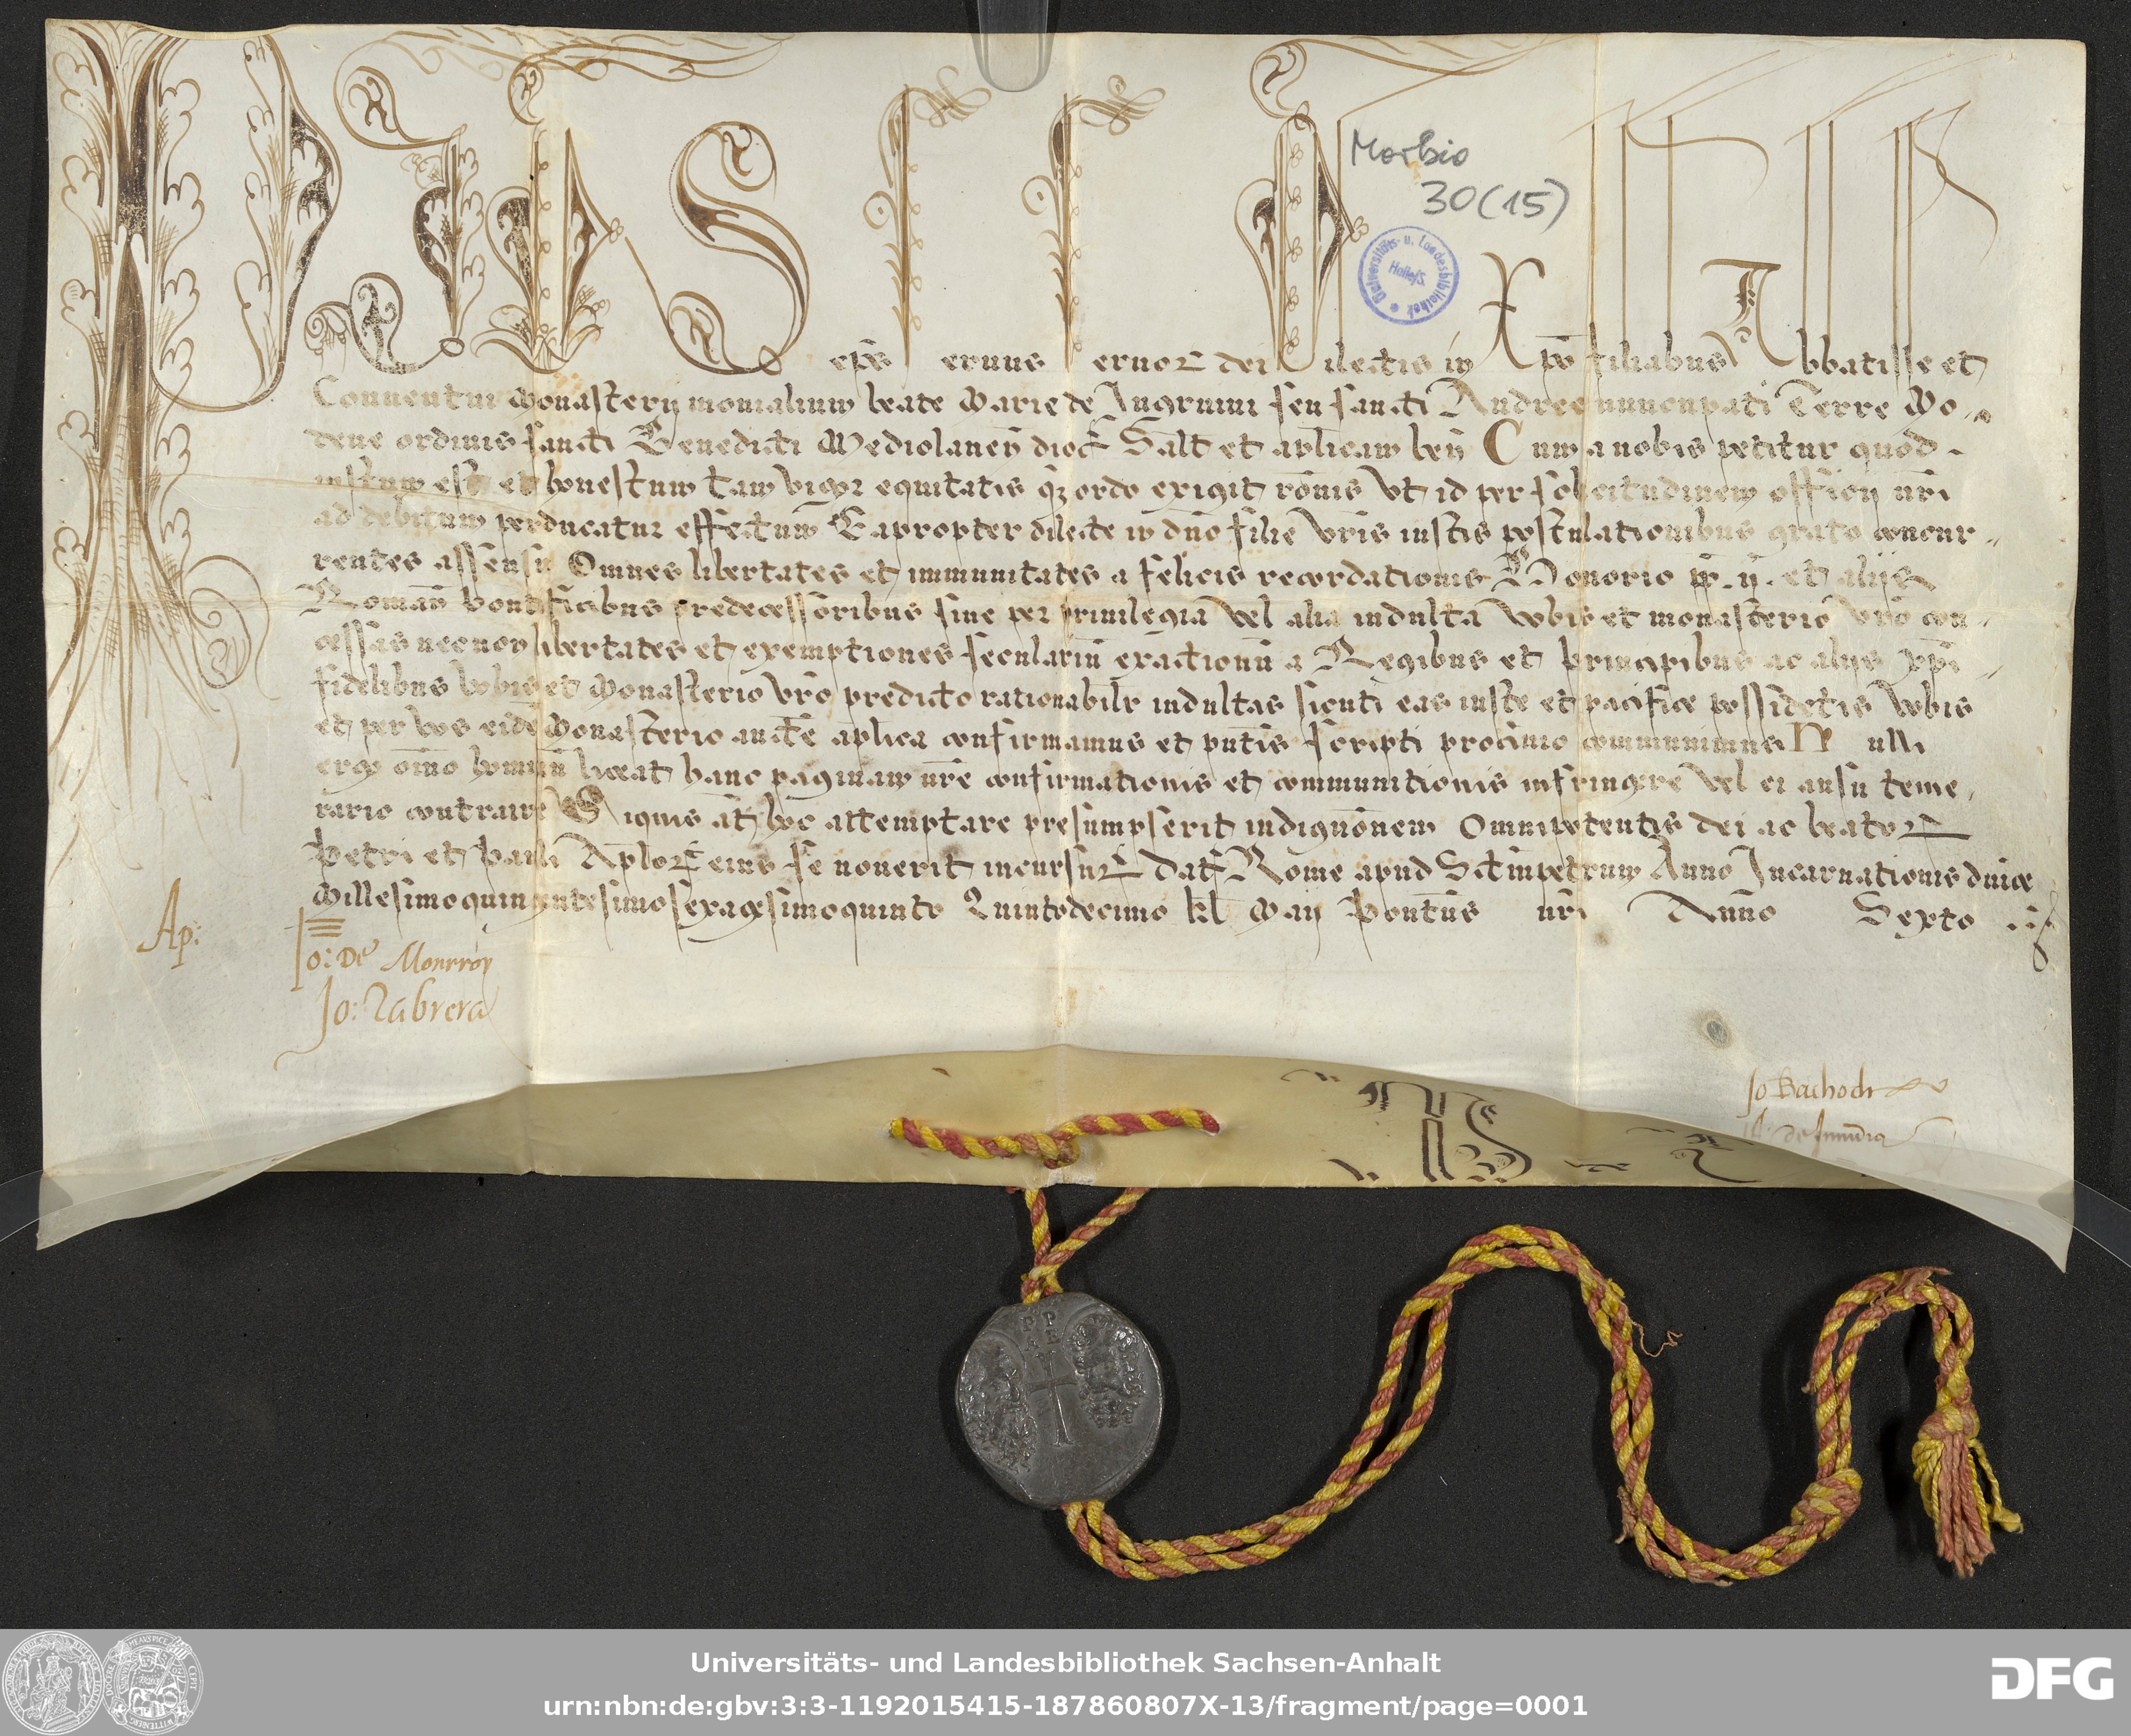 PIUS epūs Seruus Seruoꝝ dei Dilectis in Xpō filiabus Abbatisse et
Conuentui Monasterij monialium beate Marie de Ingruini seu sancti Andree nuncupati Terre Mo-
dene ordinis sancti Benedicti Mediolaneñ dioc̄ Salt̄ et aplicam beñ Cum a nobis petitur quod
iustum est et honestum tam vigor equitatis qȝ ordo exigit rōnis vt id per solicitudinem officij nrī
ad debitum perducatur effectum Eapropter dilecte in dnō filie vrīs iustis postulationibus grato concur-
rentes assensu Omnes libertates et immunitates a felicis recordationis Honorio pp̄. ij. et alijs
Romañ Pontificibus predecessoribus siue per priuilegia vel alia indulta vobis et monasterio vrō con-
cessas necnon libertates et exemptiones seculariū exactionū a Regibus et principibus ac alijs xpī
fidelibus vobis et Monasterio vrō predicto rationabilr indultas sicuti eas iuste et pacifice possidetis vobis
et per vos eidē Monasterio aucte aplica confirmamus et pntīs scripti patrocinio communimus Nulli
ergo oīno hominū liceat hanc paginam nrē confirmationis et communitionis infringere vel ei ausu teme-
rario contraire Siquis at̄ hoc attemptare presumpserit indignōnem Omnipotentis dei ac beatoꝝ
Petri et Pauli Aploꝝ eius se nouerit incursuꝝ Dat̄ Rome apud Sctm̄petrum Anno Incarnationis dnīce
Millesimoquingentesimosexagesimoquinto Quintodecimo kl̄ Maij Pontūs nrī Anno Sexto
Ap:
Jo: De Monrroy
Jo: Cabrera
Jo Bachoch
Morbio
30 (15)
Universitäts- u. Landesbibliothek
Halle/S.
PP
Universitäts- und Landesbibliothek Sachsen-Anhalt
urn:nbn:de:gbv:3:3-1192015415-187860807X-13/fragment/page=0001
DFG